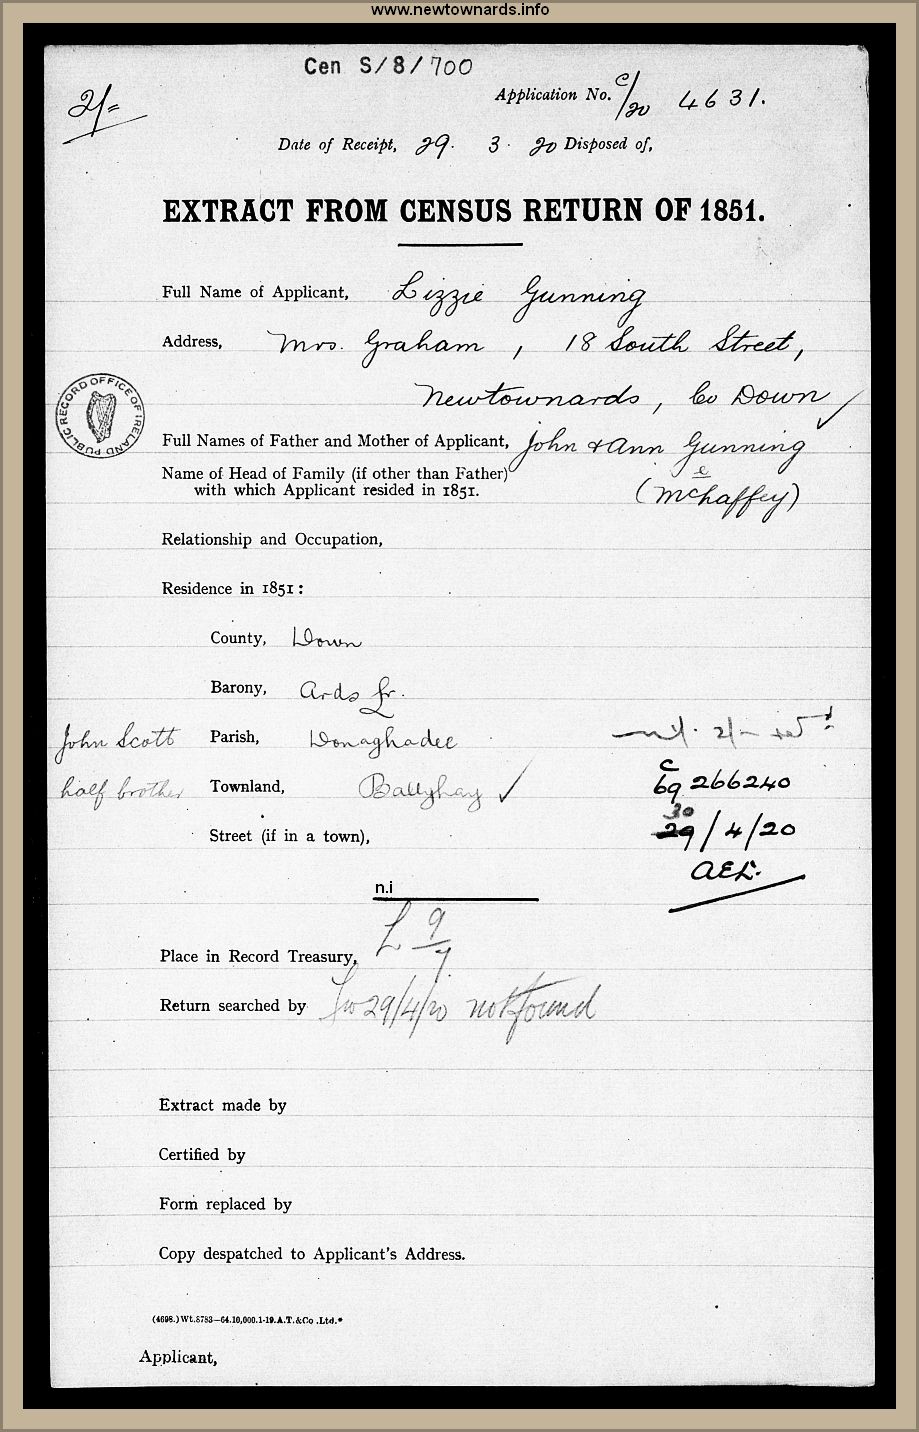 www.newtownards.info
Cen S/8/700
2/=
Application No. C/20 4631.
Date of Receipt, 29. 3. 20 Disposed of,
EXTRACT FROM CENSUS RETURN OF 1851.
Full Name of Applicant, Lizzie Gunning
Address, Mrs. Graham, 18 South Street,
Newtownards, Co Down
PUBLIC RECORD OFFICE OF IRELAND
Full Names of Father and Mother of Applicant, John & Ann Gunning
Name of Head of Family (if other than Father)
with which Applicant resided in 1851. (McHaffey)
e
Relationship and Occupation,
Residence in 1851:
County, Down
Barony, Ards Lr.
John Scott Parish, Donaghadee nil. 2/- retd
half brother Townland, Ballyhay ✓ C69 266240
Street (if in a town), 30
29/4/20
n.i
L 9/7
Place in Record Treasury,
Return searched by 29/4/20 not found
Extract made by
Certified by
Form replaced by
Copy despatched to Applicant's Address.
(4698.)Wt.8783—64.10,000.1-19.A.T.&Co.Ltd.
Applicant,